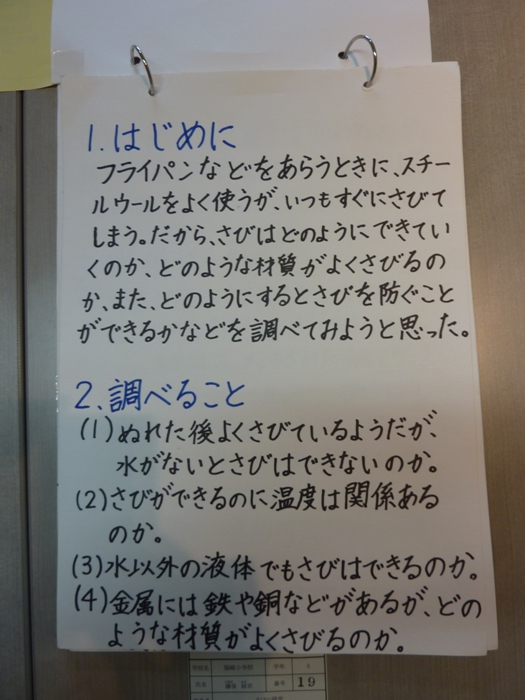 1.はじめに
フライパンなどをあらうときに、スチー
ルウールをよく使うが、いつもすぐにさびて
しまう。だから、さびはどのようにできてい
くのか、どのような材質がよくさびるの
か、また、どのようにするとさびを防ぐこと
ができるかなどを調べてみようと思った。
2.調べること
(1)ぬれた後よくさびているようだが、
水がないとさびはできないのか。
(2)さびができるのに温度は関係ある
のか。
(3)水以外の液体でもさびはできるのか。
(4)金属には鉄や銅などがあるが、どの
ような材質がよくさびるのか。
19